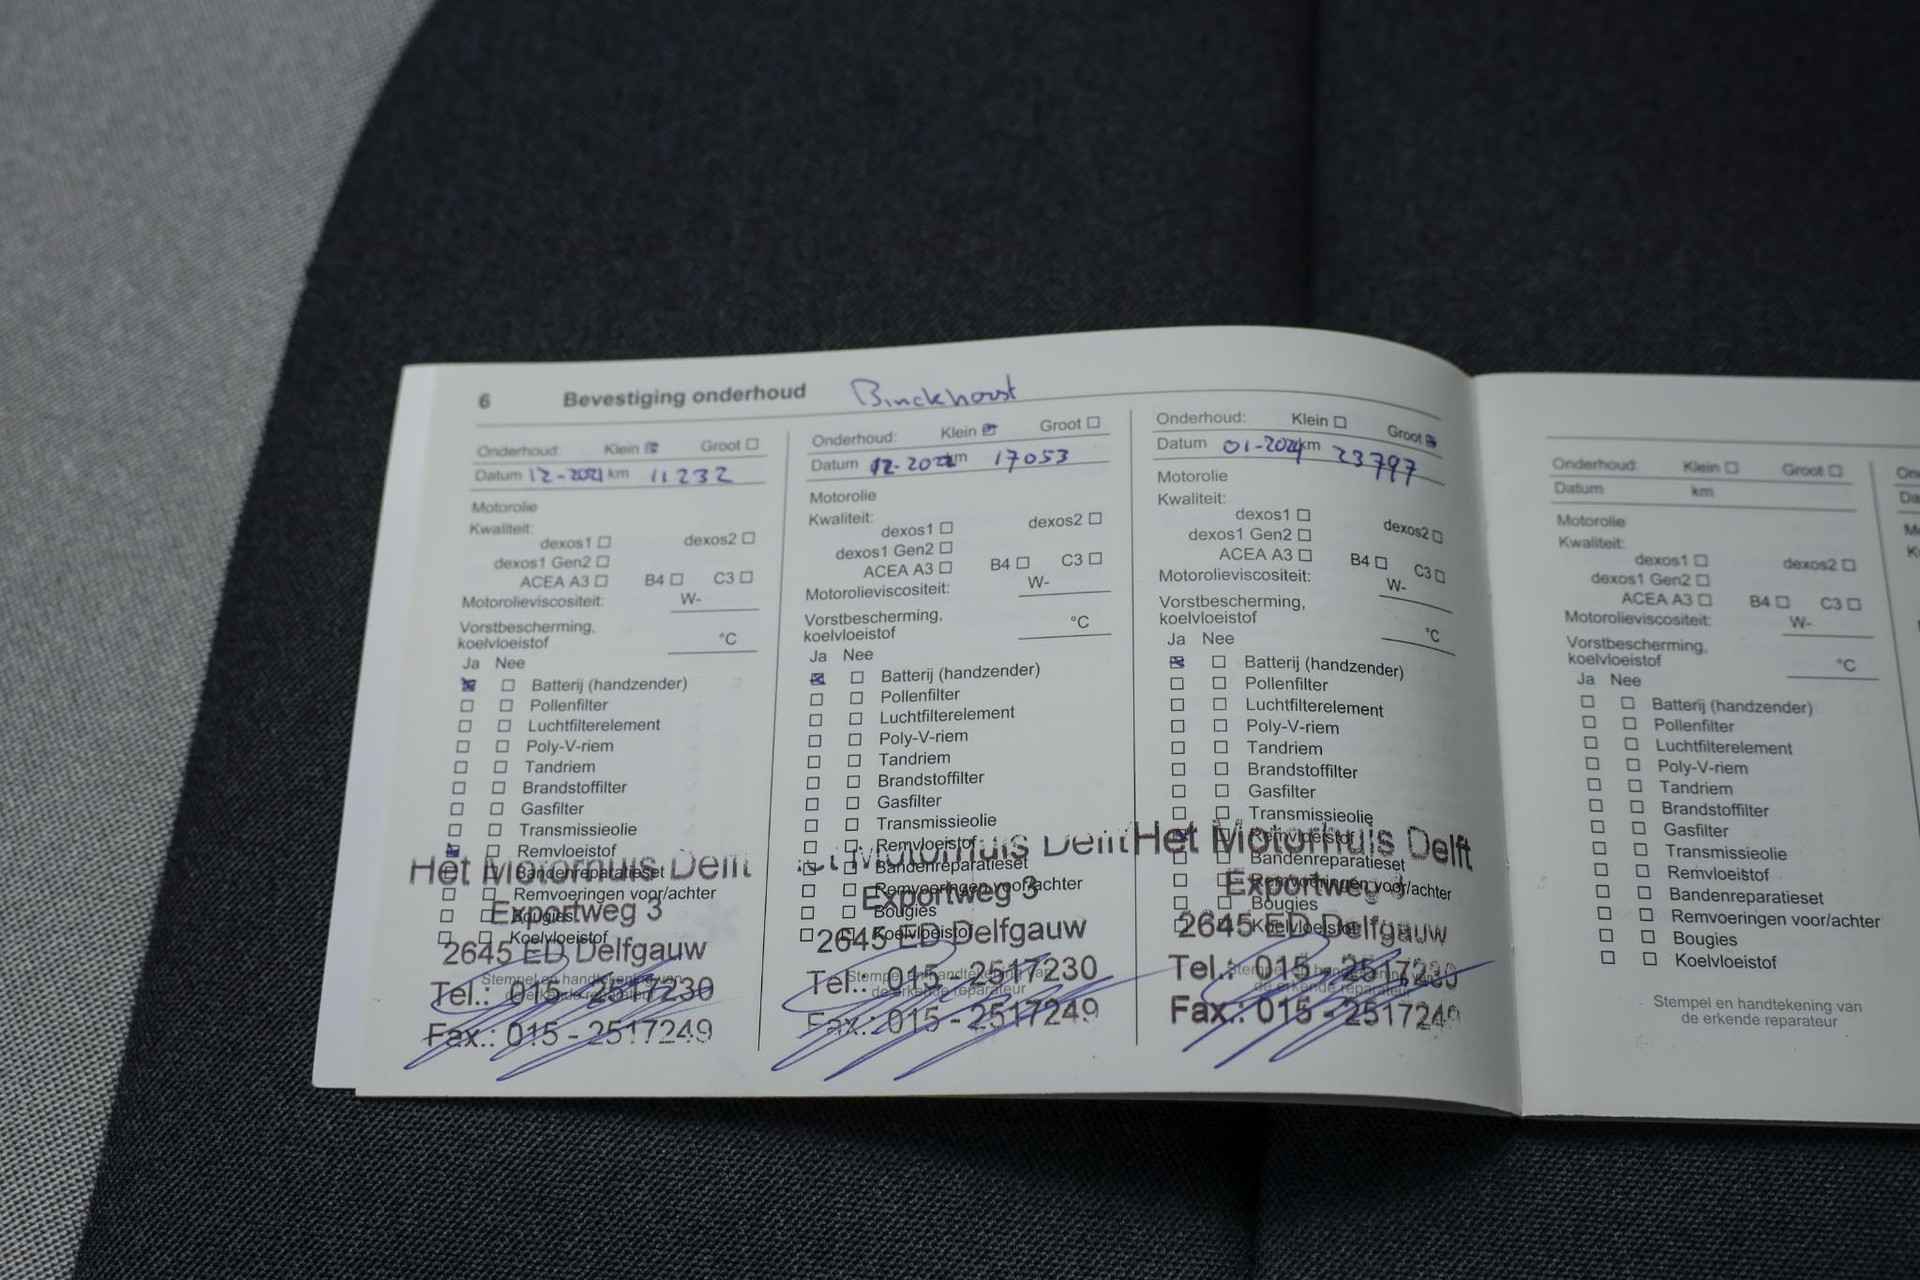 6 Bevestiging onderhoud Binckhorst
Onderhoud: Klein Groot
Datum 12-2021 km 11232
Motorolie
Kwaliteit:
dexos1 dexos2
dexos1 Gen2
ACEA A3 B4 C3
Motorolieviscositeit: W-
Vorstbescherming,
koelvloeistof °C
Ja Nee
Batterij (handzender)
Pollenfilter
Luchtfilterelement
Poly-V-riem
Tandriem
Brandstoffilter
Gasfilter
Transmissieolie
Remvloeistof
Bandenreparatieset
Remvoeringen voor/achter
Bougies
Koelvloeistof
Stempel en handtekening van
de erkende reparateur
Het Motorhuis Delft
Exportweg 3
2645 ED Delfgauw
Tel.: 015 - 2517230
Fax.: 015 - 2517249
Onderhoud: Klein Groot
Datum 12-2022 km 17053
Motorolie
Kwaliteit:
dexos1 dexos2
dexos1 Gen2
ACEA A3 B4 C3
Motorolieviscositeit: W-
Vorstbescherming,
koelvloeistof °C
Ja Nee
Batterij (handzender)
Pollenfilter
Luchtfilterelement
Poly-V-riem
Tandriem
Brandstoffilter
Gasfilter
Transmissieolie
Remvloeistof
Bandenreparatieset
Remvoeringen voor/achter
Bougies
Koelvloeistof
Stempel en handtekening van
de erkende reparateur
Motorhuis Delft
Exportweg 3
2645 ED Delfgauw
Tel.: 015 - 2517230
Fax.: 015 - 2517249
Onderhoud: Klein Groot
Datum 01-2024 km 23797
Motorolie
Kwaliteit:
dexos1 dexos2
dexos1 Gen2
ACEA A3 B4 C3
Motorolieviscositeit: W-
Vorstbescherming,
koelvloeistof °C
Ja Nee
Batterij (handzender)
Pollenfilter
Luchtfilterelement
Poly-V-riem
Tandriem
Brandstoffilter
Gasfilter
Transmissieolie
Remvloeistof
Bandenreparatieset
Remvoeringen voor/achter
Bougies
Koelvloeistof
Stempel en handtekening van
de erkende reparateur
Het Motorhuis Delft
Exportweg
2645 ED Delfgauw
Tel.: 015 - 2517230
Fax.: 015 - 2517249
Onderhoud: Klein Groot
Datum km
Motorolie
Kwaliteit:
dexos1 dexos2
dexos1 Gen2
ACEA A3 B4 C3
Motorolieviscositeit: W-
Vorstbescherming,
koelvloeistof °C
Ja Nee
Batterij (handzender)
Pollenfilter
Luchtfilterelement
Poly-V-riem
Tandriem
Brandstoffilter
Gasfilter
Transmissieolie
Remvloeistof
Bandenreparatieset
Remvoeringen voor/achter
Bougies
Koelvloeistof
Stempel en handtekening van
de erkende reparateur